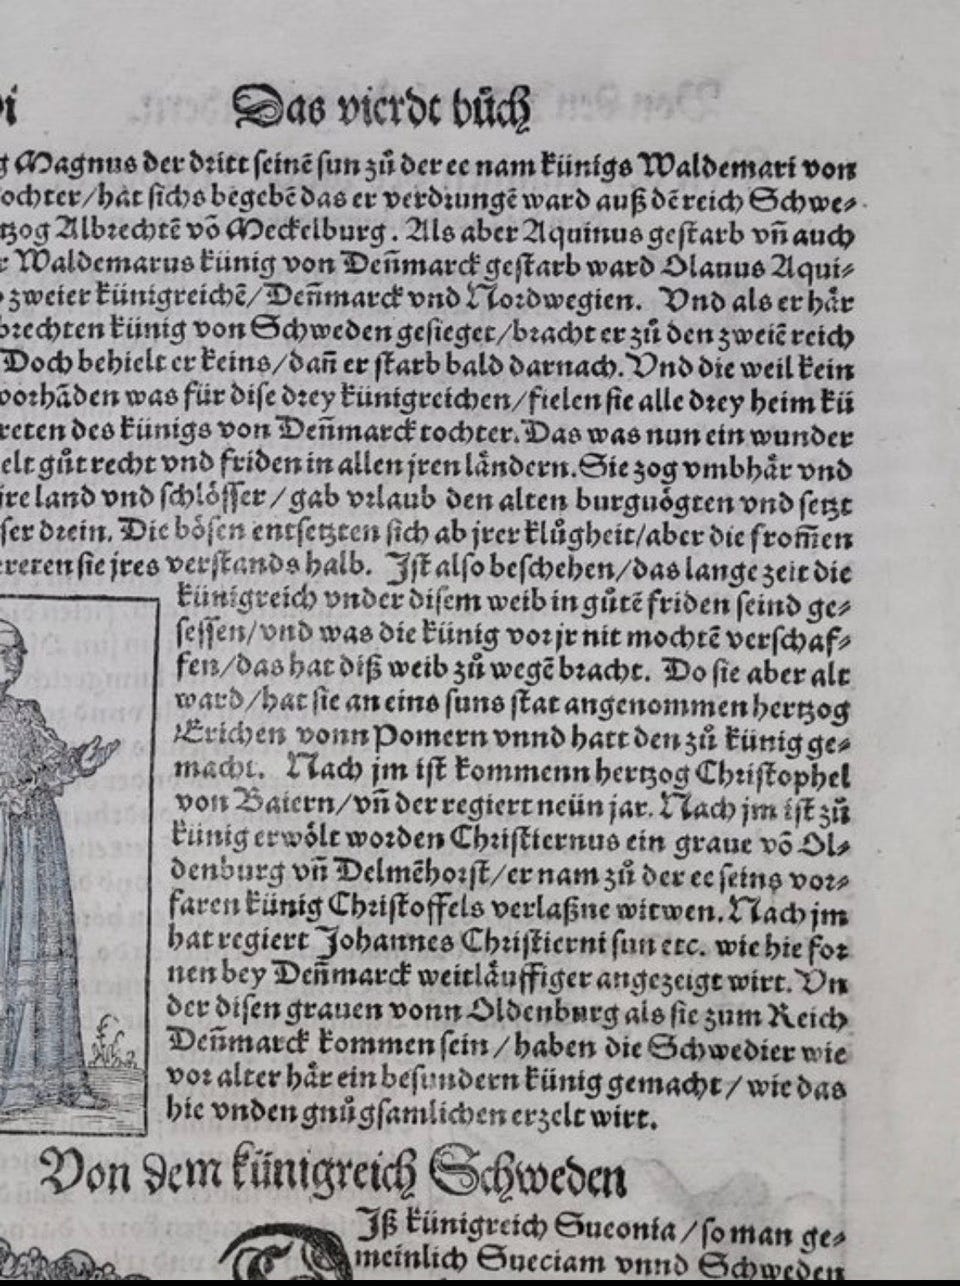 Das vierdt bůch
Magnus der dritt seinē sun zů der ee nam künigs Waldemari von
ochter/hat sichs begebē das er verdrungē ward auß dē reich Schwe⸗
tzog Albrechtē vō Meckelburg. Als aber Aquinus gestarb vñ auch
r Waldemarus künig von Deñmarck gestarb ward Olauus Aqui⸗
zweier künigreichē/Deñmarck vnd Nordwegien. Vnd als er hår
brechten künig von Schweden gesieget/bracht er zů den zweiē reich
Doch behielt er keins/dañ er starb bald darnach. Vnd die weil kein
vorhāden was für dise drey künigreichen/fielen sie alle drey heim kü
reten des künigs von Deñmarck tochter. Das was nun ein wunder
elt gůt recht vnd friden in allen jren låndern. Sie zog vmbhår vnd
ire land vnd schlösser/gab vrlaub den alten burguögten vnd setzt
ser drein. Die bösen entsetzten sich ab jrer klůgheit/aber die from̄en
ereten sie jres verstands halb. Ist also beschehen/das lange zeit die
künigreich vnder disem weib in gůtē friden seind ge⸗
sessen/vnd was die künig vor jr nit mochtē verschaf⸗
fen/das hat diß weib zů wegē bracht. Do sie aber alt
ward/hat sie an eins suns stat angenommen hertzog
Erichen vonn Pomern vnnd hatt den zů künig ge⸗
macht. Nach jm ist kommenn hertzog Christophel
von Baiern/vñ der regiert neün jar. Nach jm ist zů
künig erwölt worden Christiernus ein graue vō Ol⸗
denburg vñ Delmēhorst/er nam zů der ee seins vor⸗
faren künig Christoffels verlaßne witwen. Nach jm
hat regiert Johannes Christierni sun etc. wie hie for
nen bey Deñmarck weitläuffiger angezeigt wirt. Vn
der disen grauen vonn Oldenburg als sie zum Reich
Deñmarck kommen sein/haben die Schwedier wie
vor alter hår ein besundern künig gemacht/wie das
hie vnden gnůgsamlichen erzelt wirt.
Von dem künigreich Schweden
Iß künigreich Sueonia/so man ge⸗
meinlich Sueciam vnnd Schweden